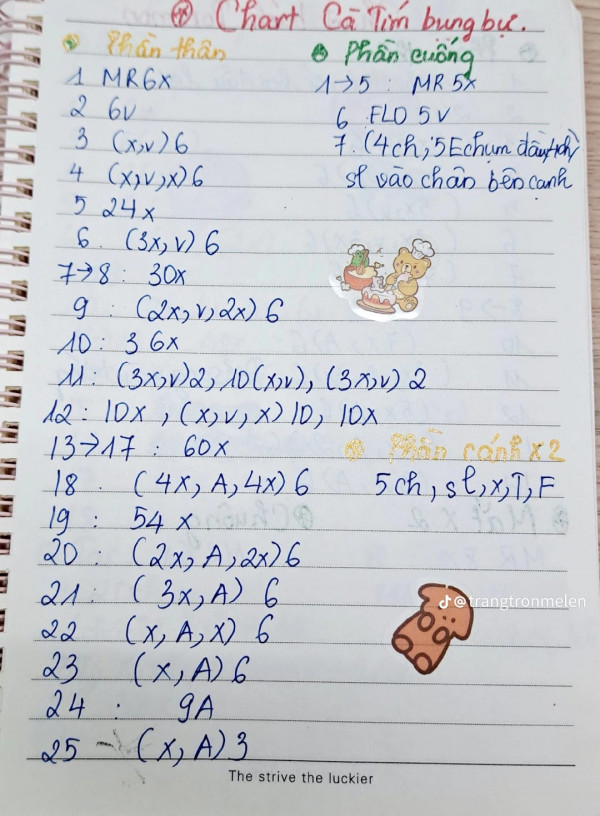 Chart Cà Tím bung bự.
Phần thân
1 MR6x
2 6v
3 (x,v)6
4 (x,v,x)6
5 24x
6. (3x,v)6
7→8: 30x
9 : (2x,v,2x)6
10: 36x
11: (3x,v)2, 10(x,v), (3x,v)2
12: 10x, (x,v,x)10, 10x
13→17: 60x
18. (4x,A,4x)6
19: 54x
20: (2x,A,2x)6
21: (3x,A)6
22 (x,A,x)6
23 (x,A)6
24 : 9A
25 - (x,A)3
Phần cuống
1→5: MR5x
6 FLO 5v
7. (4ch, 5Echụm đầu,
sl vào chân bên cạnh
Phần cánh x2
5ch, sl, x, T, F
@trangtronmelen
The strive the luckier